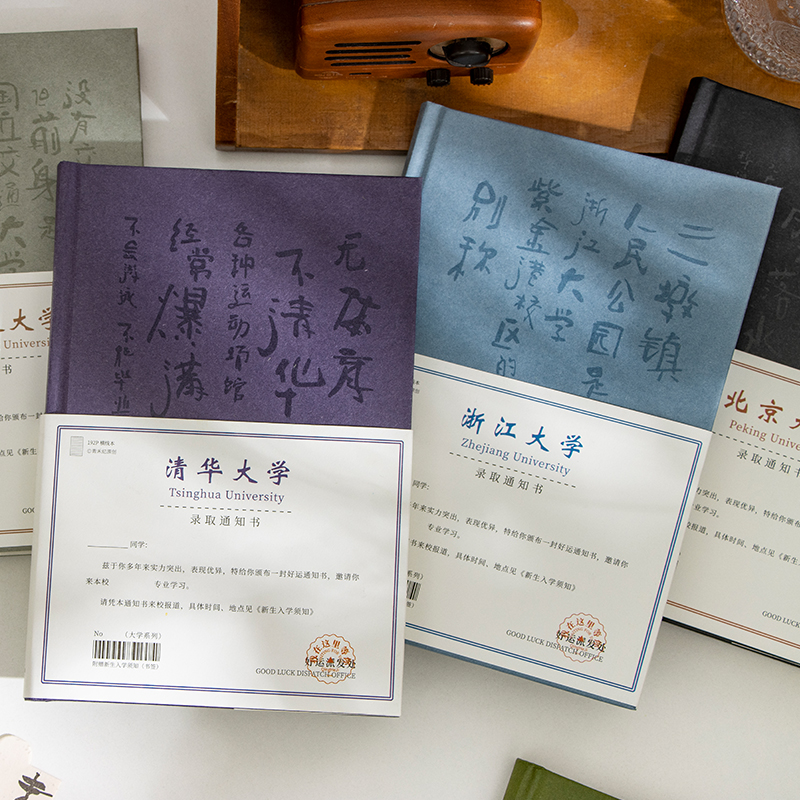 没有交
但前身是
国立交通大学
大学
University
知书
无体育
不清华
各种运动场馆
经常爆满
不会游泳 不能毕业
192P 横线本
清华大学
Tsinghua University
录取通知书
同学:
兹于你多年来实力突出，表现优异，特给你颁布一封好运通知书，邀请你
来本校 专业学习。
请凭本通知书来校报道，具体时间、地点见《新生入学须知》
No （大学系列）
附赠新生入学须知（书签）
好运派发处
GOOD LUCK DISPATCH OFFICE
三墩镇
人民公园是
浙江大学
紫金港校区的
别称
浙江大学
Zhejiang University
录取通知书
同学:
年来实力突出，表现优异，特给你颁布一封好运通知书，邀请你
专业学习。
书来校报道，具体时间、地点见《新生入学须知》
系列）
好运派发处
GOOD LUCK DISPATCH OFFICE
落水
北京大
Peking Univer
录取通知书
突出，表现优异，特给你颁布一封好
专业学习。
校报道，具体时间、地点见《新
GOOD LUCK